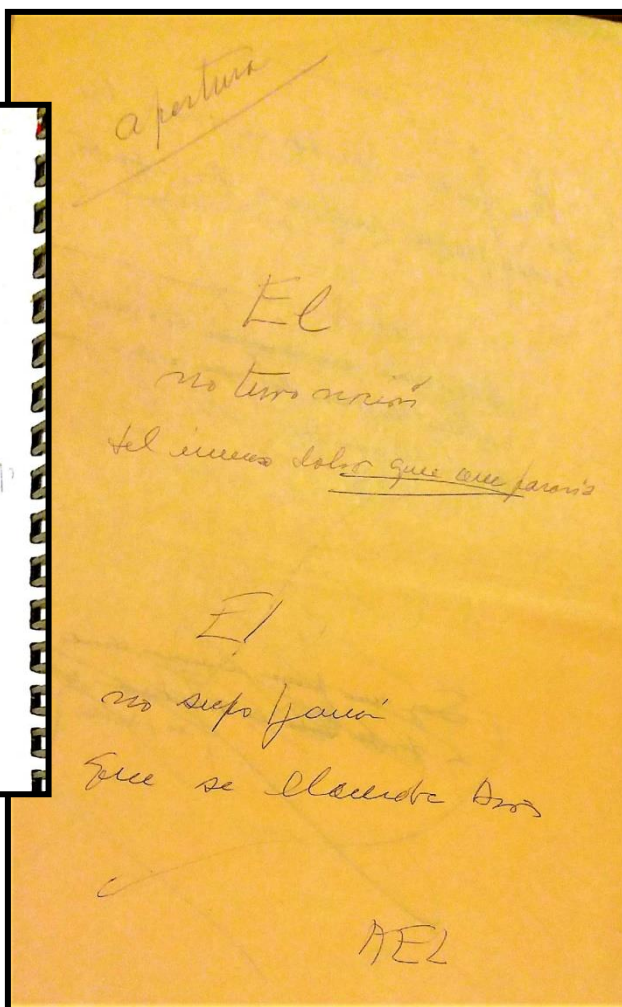 apertura
El
no tuvo noción
del inmenso dolor que me
El
no supo jamás
que se llamaba Dios
AEL